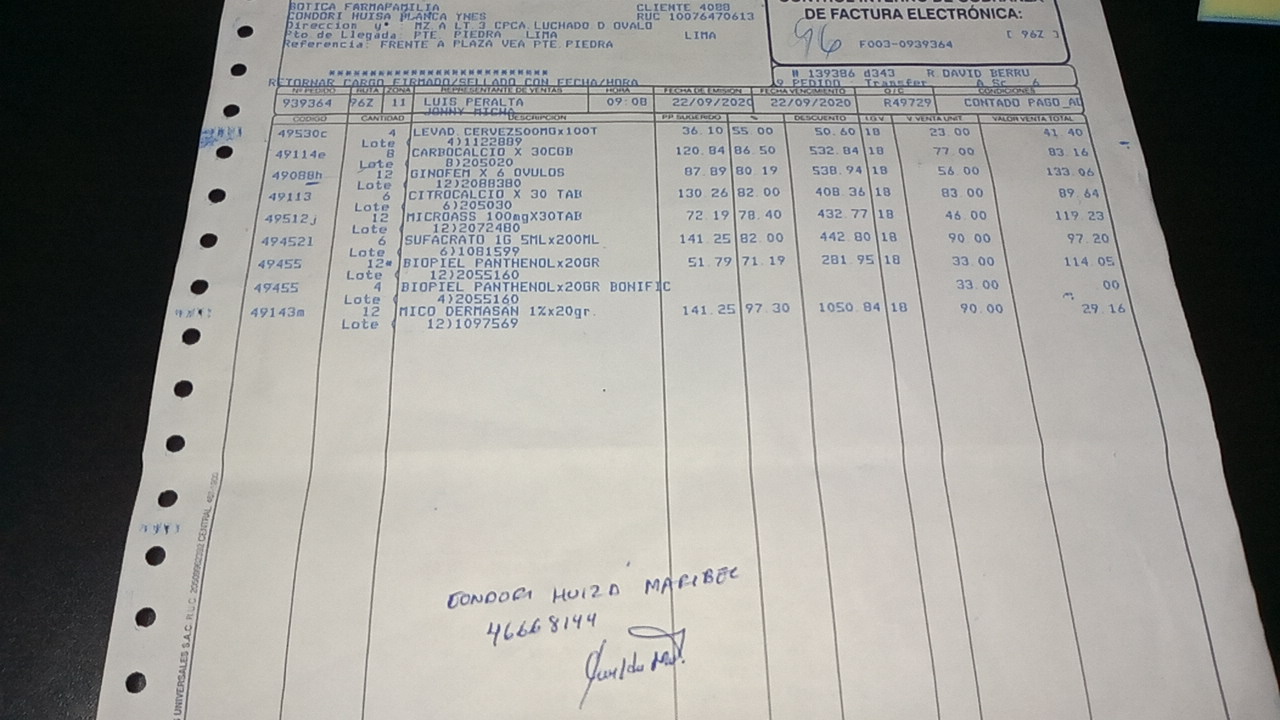 BOTICA FARMAFAMILIA CLIENTE 4088
CONDORI HUISA PLANCA YNES RUC 10076470613
Direccion MZ A LT.3 CPCA.LUCHADO D OVALO
Pto.de Llegada: PTE. PIEDRA LIMA LIMA
Referencia: FRENTE A PLAZA VEA PTE.PIEDRA
CONTROL INTERNO DE COBRANZA
DE FACTURA ELECTRÓNICA:
96 F003-0939364 [ 96Z ]
RETORNAR CARGO FIRMADO/SELLADO CON FECHA/HORA
# 139386 d343 R.DAVID BERRU
PEDIDO: Transfer A.Sc. 6
Nº PEDIDO RUTA ZONA REPRESENTANTE DE VENTAS HORA FECHA DE EMISION FECHA VENCIMIENTO O/C CONDICIONES
939364 96Z 11 LUIS PERALTA 09:08 22/09/2020 22/09/2020 R49729 CONTADO PAGO AD
JONNY MICHA
CODIGO CANTIDAD DESCRIPCION P.P. SUGERIDO % DESCUENTO I.G.V. V. VENTA UNIT VALOR VENTA TOTAL
49530c 4 LEVAD.CERVEZ500MGx100T 36.10 55.00 50.60 18 23.00 41.40
Lote ( 4)1122889
49114e 8 CARBOCALCIO X 30CGB 120.84 86.50 532.84 18 77.00 83.16
Lote ( 8)205020
49088h 12 GINOFEM X 6 OVULOS 87.89 80.19 538.94 18 56.00 133.06
Lote ( 12)2088380
49113 6 CITROCALCIO X 30 TAB 130.26 82.00 408.36 18 83.00 89.64
Lote ( 6)205030
49512j 12 MICROASS 100mgX30TAB 72.19 78.40 432.77 18 46.00 119.23
Lote ( 12)2072480
494521 6 SUFACRATO 1G 5MLx200ML 141.25 82.00 442.80 18 90.00 97.20
Lote ( 6)1081599
49455 12* BIOPIEL PANTHENOLx20GR 51.79 71.19 281.95 18 33.00 114.05
Lote ( 12)2055160
49455 4 BIOPIEL PANTHENOLx20GR BONIFIC 33.00 00
Lote ( 4)2055160
49143m 12 MICO DERMASAN 1%x20gr. 141.25 97.30 1050.84 18 90.00 29.16
Lote ( 12)1097569
CONDORI HUIZA MARIBEL
46668144
UNIVERSALES S.A.C. R.U.C.